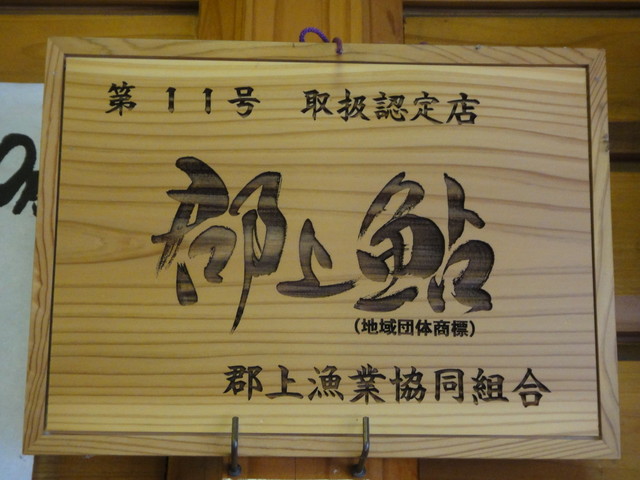 第11号 取扱認定店
郡上鮎
(地域団体商標)
郡上漁業協同組合